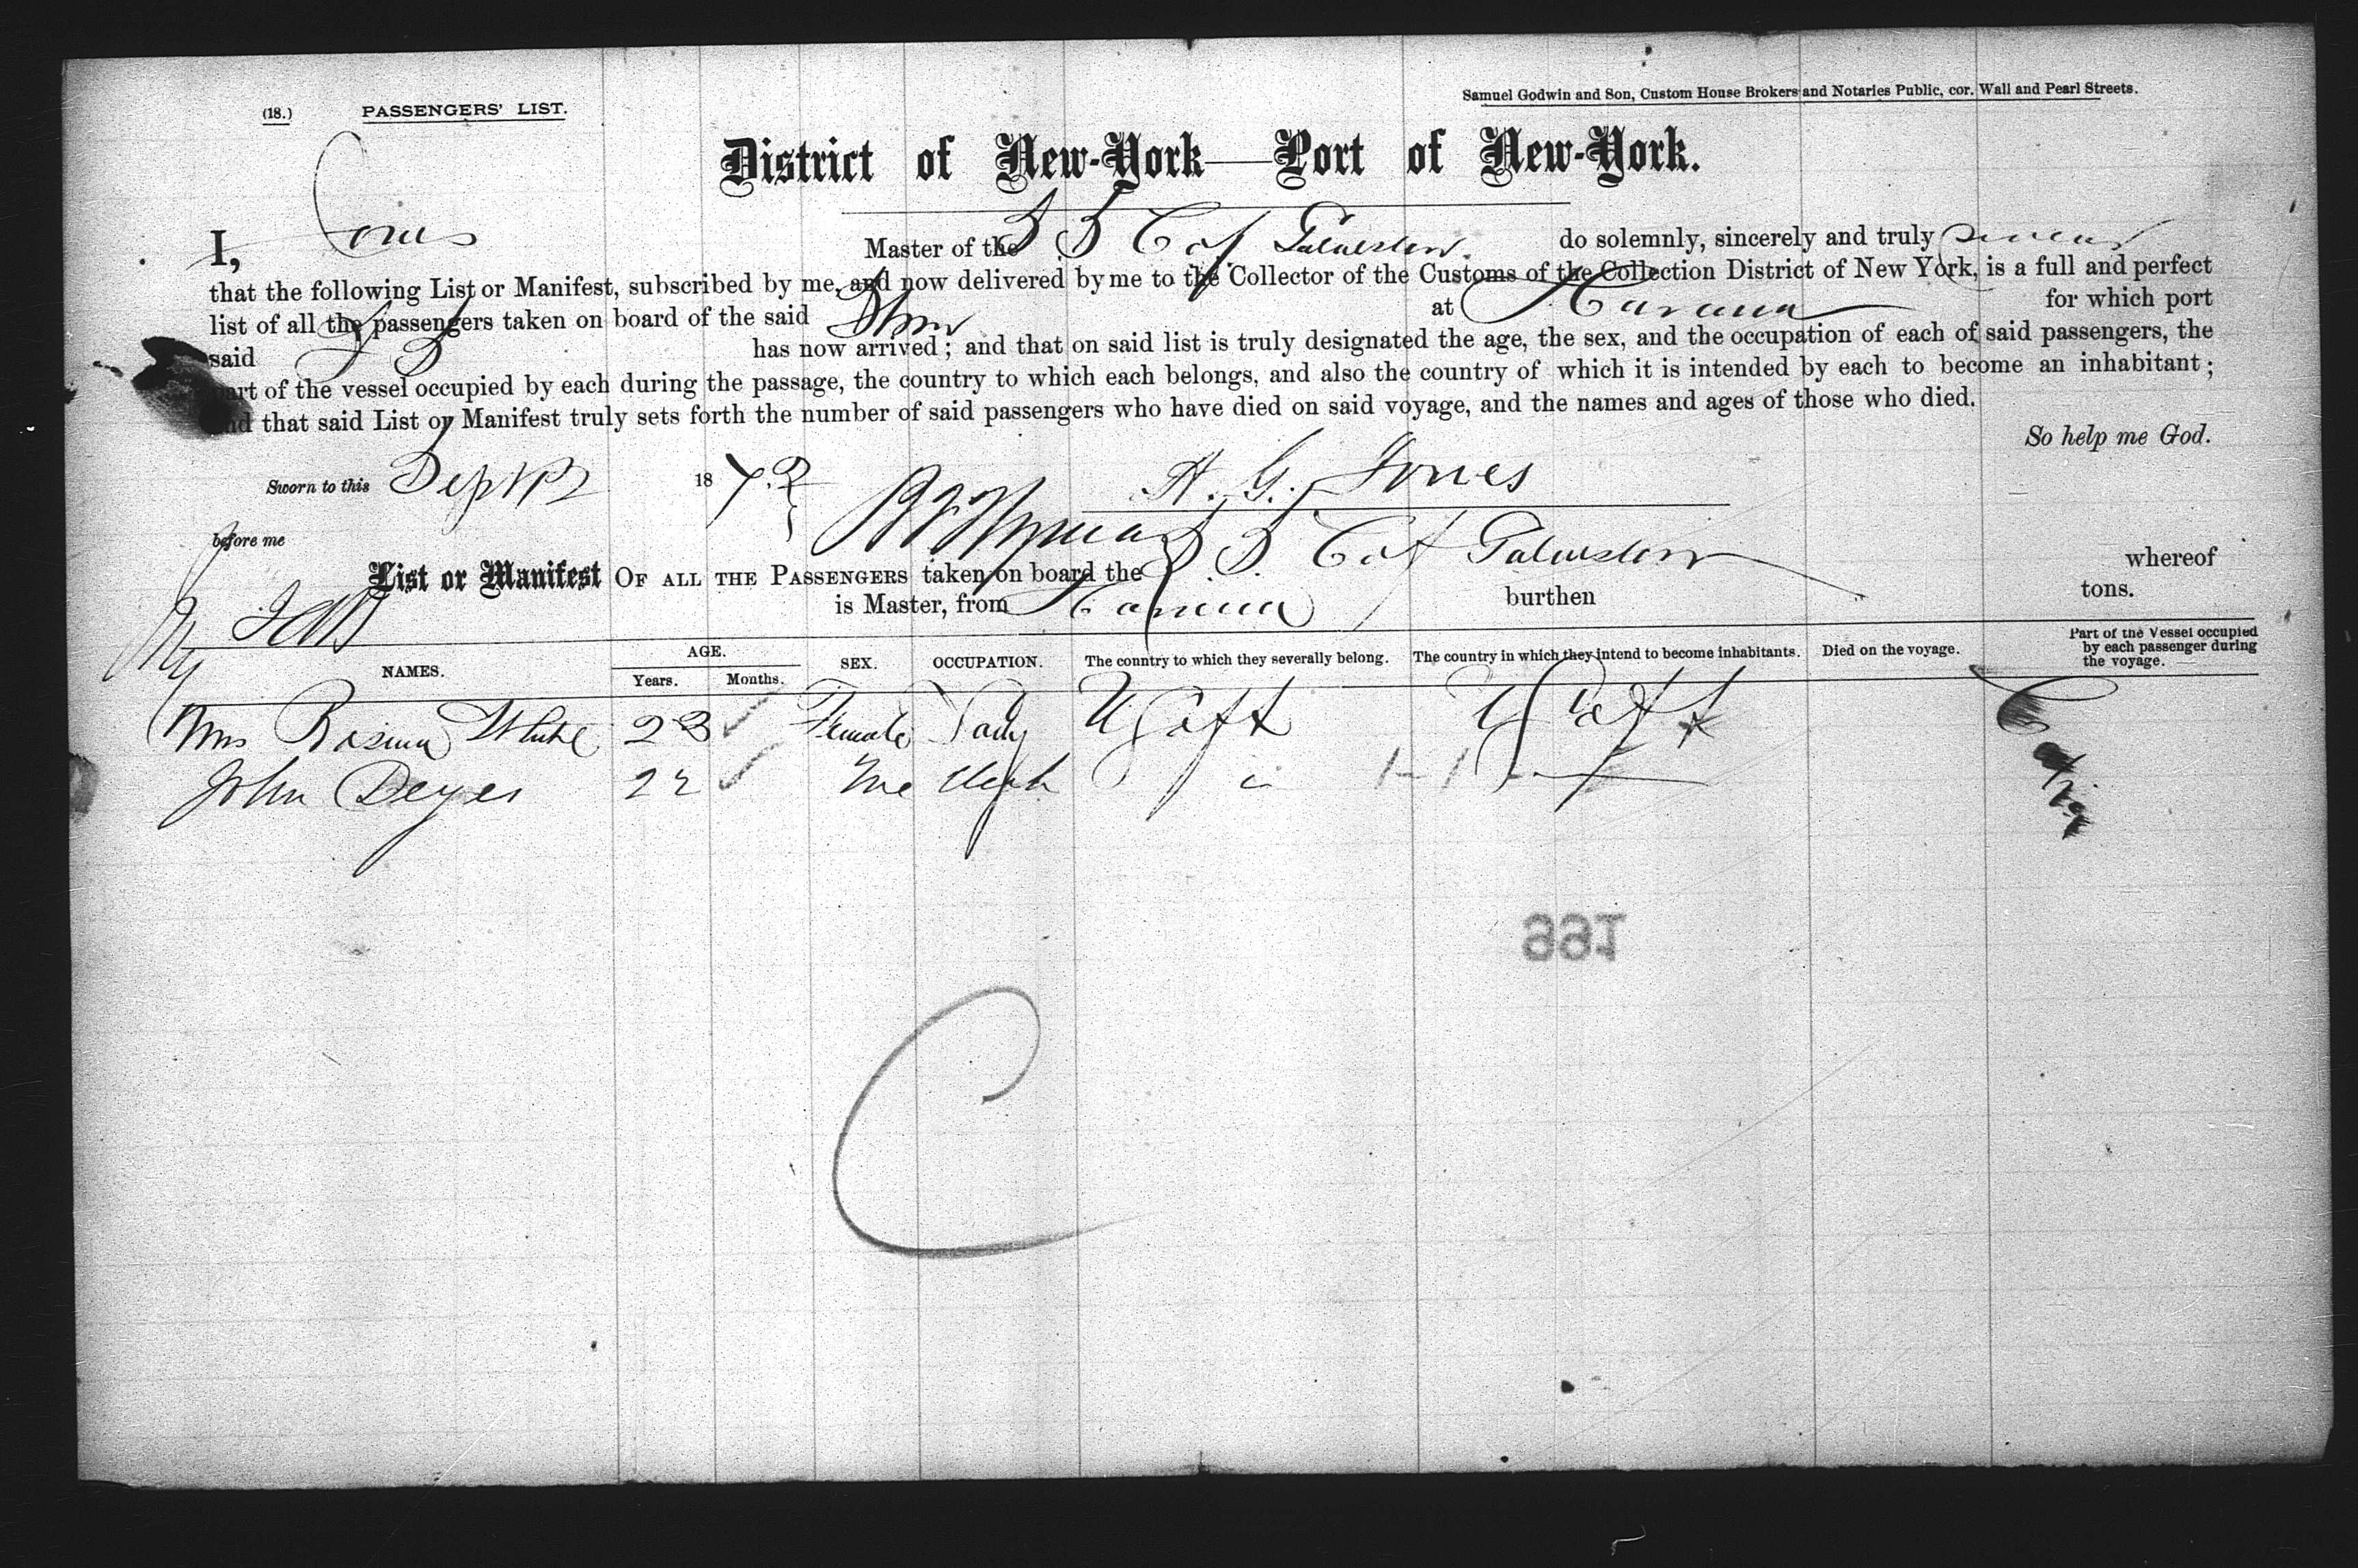 (18.) PASSENGERS' LIST.
Samuel Godwin and Son, Custom House Brokers and Notaries Public, cor. Wall and Pearl Streets.
District of New-York—Port of New-York.
I, Jones Master of the S S City of Galveston do solemnly, sincerely and truly swear
that the following List or Manifest, subscribed by me, and now delivered by me to the Collector of the Customs of the Collection District of New York, is a full and perfect
list of all the passengers taken on board of the said Stmr at Havana for which port
said S S has now arrived; and that on said list is truly designated the age, the sex, and the occupation of each of said passengers, the
part of the vessel occupied by each during the passage, the country to which each belongs, and also the country of which it is intended by each to become an inhabitant;
and that said List or Manifest truly sets forth the number of said passengers who have died on said voyage, and the names and ages of those who died.
So help me God.
Sworn to this Sept 1873 H. G. Jones
before me
List or Manifest OF ALL THE PASSENGERS taken on board the S. S. City of Galveston whereof
is Master, from Havana burthen tons.
NAMES. AGE. Years. Months. SEX. OCCUPATION. The country to which they severally belong. The country in which they intend to become inhabitants. Died on the voyage. Part of the Vessel occupied by each passenger during the voyage.
Mrs Rosina White 23 Female Lady
John Deyer 22 Me Clerk
199
C